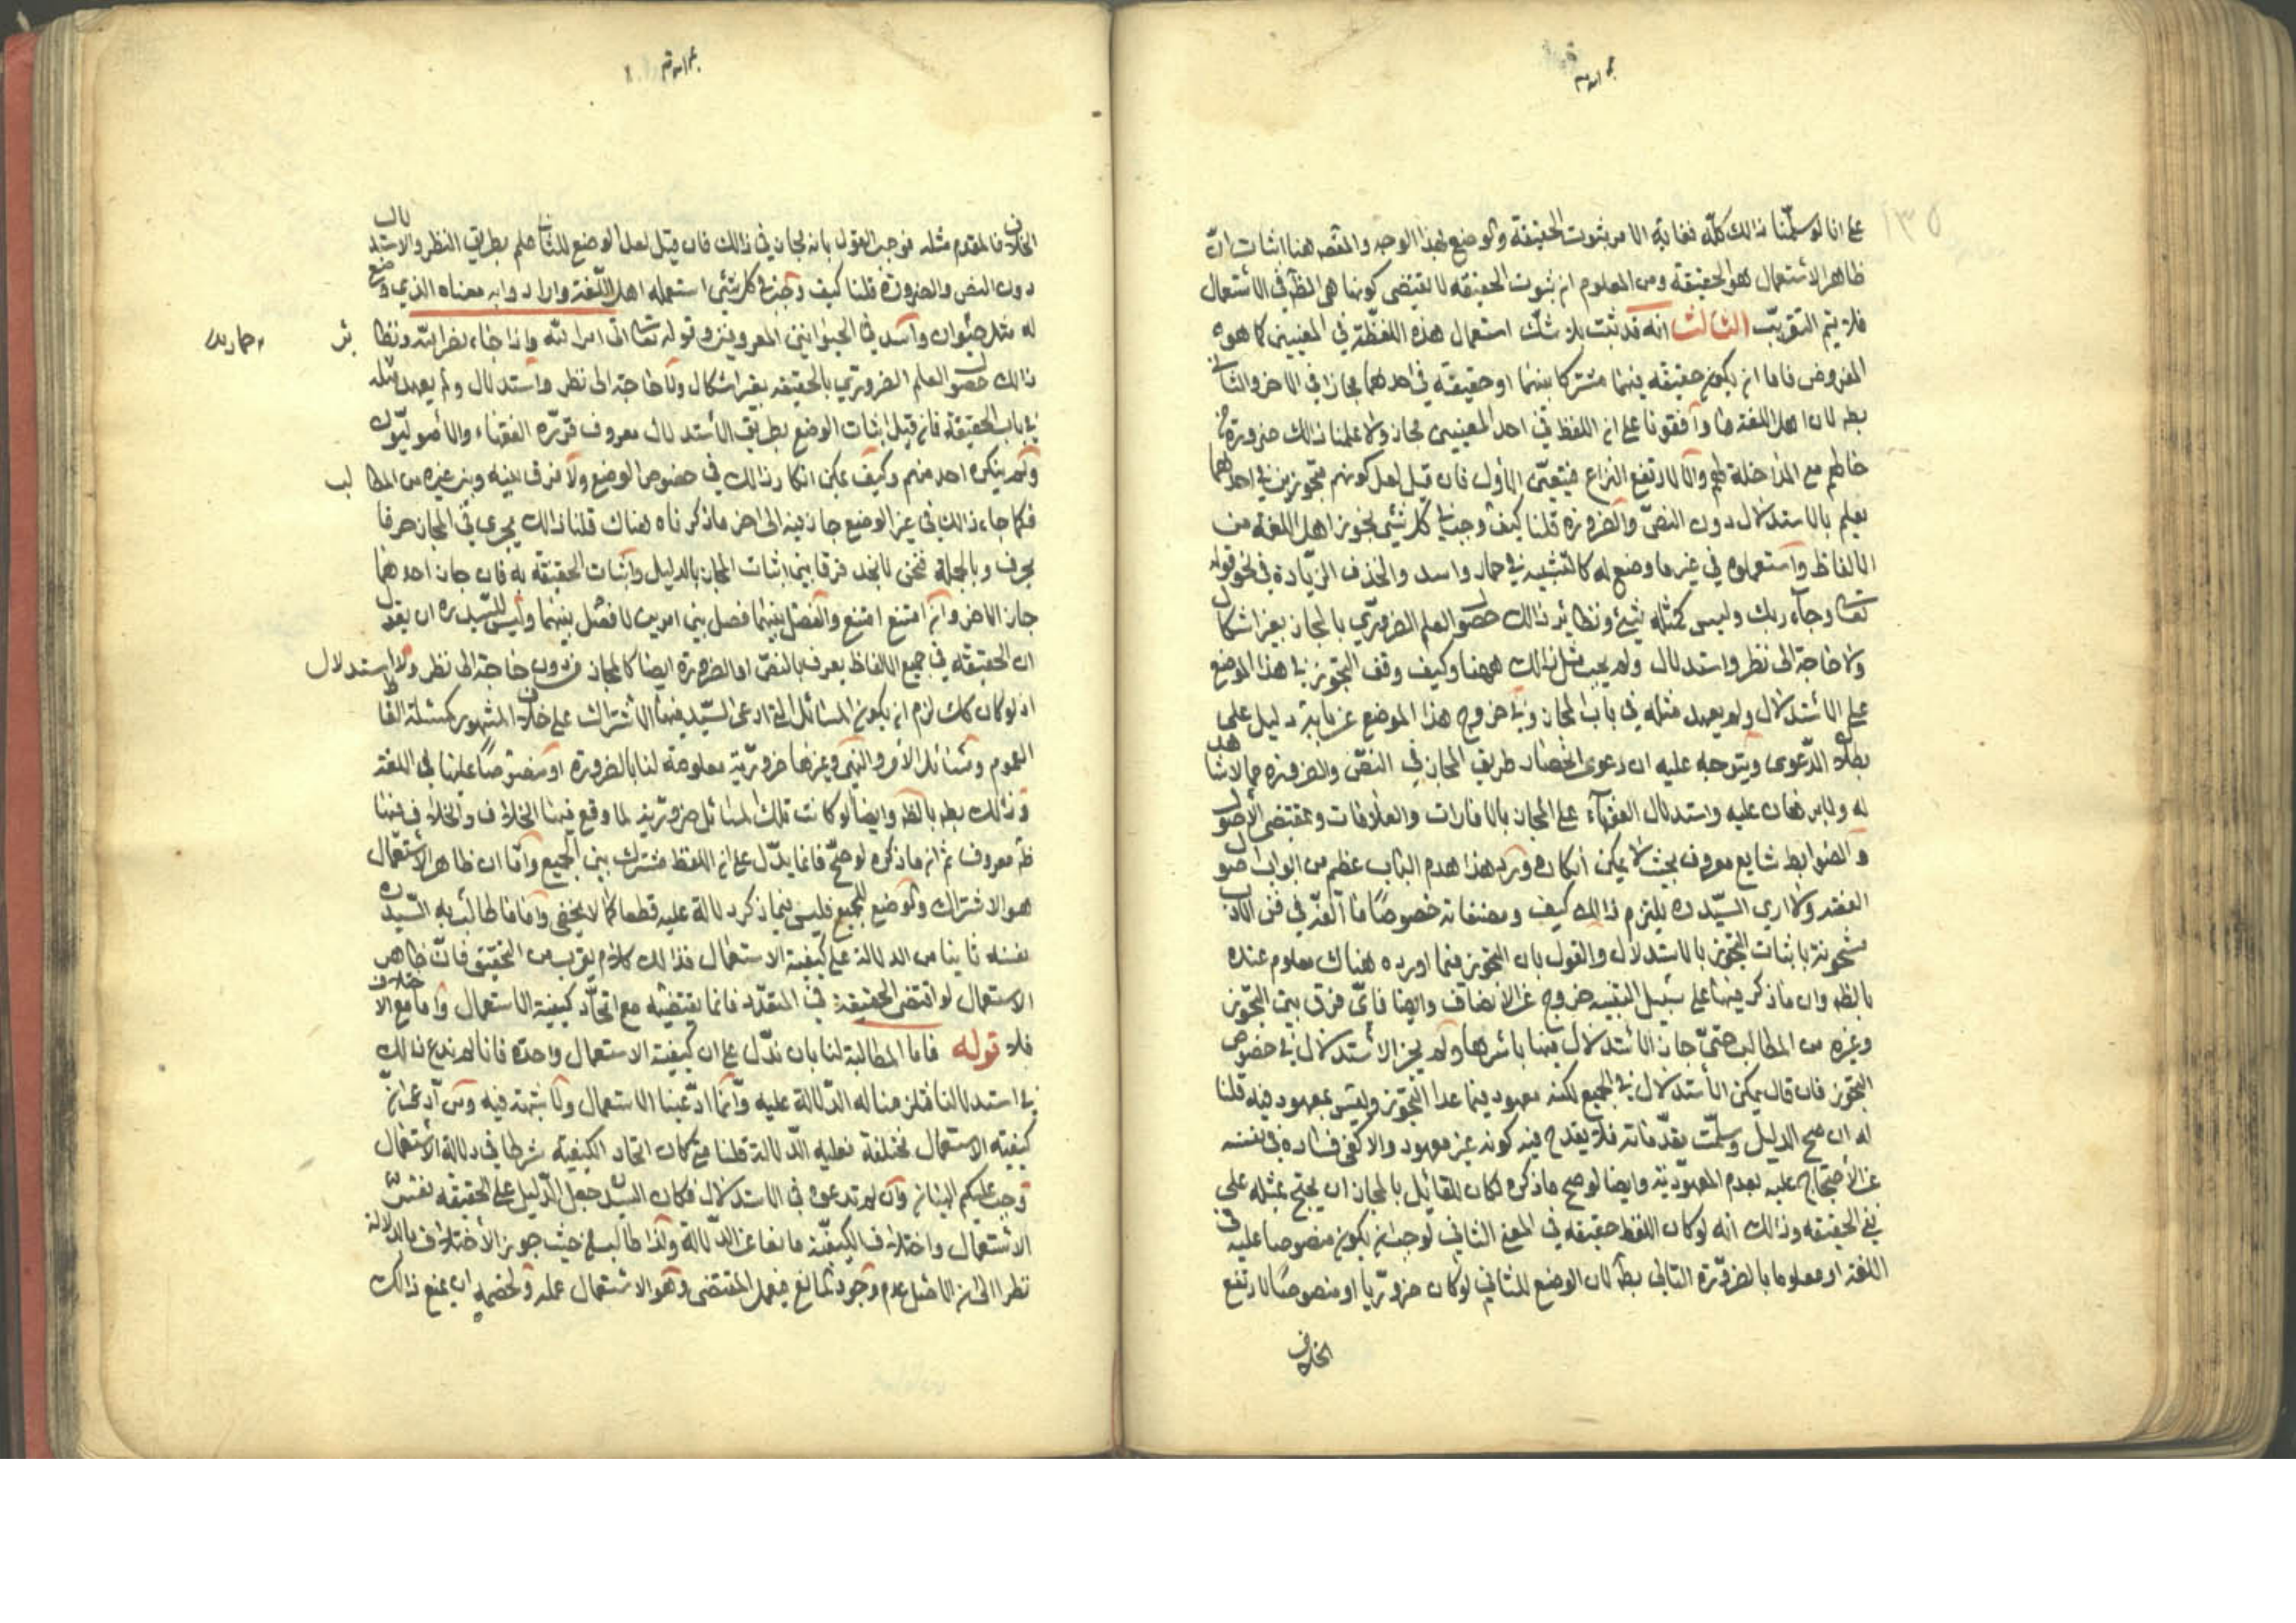 ١٣٥
على انا لو سلمنا ذلك كله فغاية الامر ثبوت الحقيقة والوضع بهذا الوجه والمقصـ هنا اثبات ان
ظاهر الاستعمال هو الحقيقة ومن المعلوم ان ثبوت الحقيقة لا يقتضى كونها هى الظـ فى الاستعمال
فلا يتم التقريب الثالث انه قد ثبت بلا شك استعمال هذه اللفظة فى المعنيين كما هو
المفروض فاما ان يكون حقيقة فيهما مشتركا بينهما او حقيقة فى احدهما مجازا فى الاخر والثانى
بطـ لان اهل اللغة ما وافقونا على ان اللفظ فى احد المعنيين مجاز ولا علمنا ذلك ضرورة من
حالهم مع المداخلة لهم والا لارتفع النزاع فيتعين الاول فان قيل لعل كونهم متجوزين فى احدهما
يعلم بالاستدلال دون النص والضرورة قلنا كيف وجب فى كل شئ تجوز اهل اللغة من
الالفاظ واستعملوه فى غير ما وضع له كالتشبيه فى حمار واسد والحذف الزيادة فى نحو قوله
تعالى وجاء ربك وليس كمثله شئ ونظاير ذلك حصول العلم الضرورى بالمجاز بغير اشكال
ولا حاجة الى نظر واستدلال ولم يجب مثل ذلك ههنا وكيف وقف التجوز فى هذا الموضع
على الاستدلال ولم يعهد مثله فى باب المجاز وفى خروج هذا الموضع عن بابه دليل على
بطلان الدعوى ويتوجه عليه ان دعوى انحصار طريق المجاز فى النص والضرورة مما لا شاهد
له ولا برهان عليه واستدلال الفقهاء على المجاز بالامارات والعلاقات وبمقتضى الاصول
والضوابط شايع معروف بحيث لا يمكن انكاره وفى هذا هدم الباب عظيم من ابواب اصول
الفقه ولا ارى السيد ره يلتزم ذلك كيف ومصنفاته خصوصا ما الفه فى فن الادب
مشحونة باثبات التجوز بالاستدلال والقول بان التجوز فيما اورده هناك معلوم عنده
بالظـ وان ما ذكر فيها على سبيل التنبيه خروج عن الانصاف وايضا فاى فرق بين التجوز
وغيره من المطالب حتى جاز الاستدلال فيها باسرها ولم يجز الاستدلال فى خصوص
التجوز فان قال يمكن الاستدلال فى الجميع لكنه معهود فيما عدا التجوز وليس بمعهود فيه قلنا
له ان صح الدليل وسلمت مقدماته فلا يقدح فيه كونه غير معهود والا كفى فساده فى نفسه
عن الاحتجاج عليه بعدم المعهودية وايضا لو صح ما ذكره لكان للقائل بالمجاز ان يحتج بمثله على
نفى الحقيقة وذلك انه لو كان اللفظ حقيقة فى المعنى الثانى لوجب ان يكون منصوصا عليه فى
اللغة او معلوما بالضرورة التالى بطـ لان الوضع للثانى لو كان ضروريا او منصوصا لارتفع
الخلاف
الخلاف فالمقدم مثله فوجب القول بانه مجاز فى ذلك فان قيل لعل الوضع للثانى علم بطريق النظر والاستدلال
دون النص والضرورة قلنا كيف وجب فى كل شئ استعمله اهل اللغة وارادوا به معناه الذى وضع
له مثل حيوان واسد فى الحيوانين المعروفين وقوله تعالى اتى امر الله واذا جاء نصر الله ونظائر
ذلك حصول العلم الضرورى بالحقيقة بغير اشكال ولا حاجة الى نظر واستدلال ولم يعهد مثله
فى باب الحقيقة فان قيل اثبات الوضع بطريق الاستدلال معروف قرره الفقهاء والاصوليون
ولم ينكره احد منهم وكيف يمكن انكار ذلك فى خصوص الوضع ولا فرق بينه وبين غيره من المطالب
فكما جاء ذلك فى غير الوضع جاز فيه الى اخر ما ذكرناه هناك قلنا ذلك يجرى فى المجاز حرفا
بحرف وبالجملة فنحن لا نجد فرقا بين اثبات المجاز بالدليل واثبات الحقيقة به فان جاز احدهما
جاز الاخر وان امتنع امتنع والفصل بينهما فصل بين امرين لا فصل بينهما وليس للسيد ره ان يقول
ان الحقيقة فى جميع الالفاظ يعرف بالنص او الضرورة ايضا كالمجاز من دون حاجة الى نظر ولا استدلال
اذ لو كان كك لزم ان يكون المسائل التى ادعى السيد فيها الاشتراك على خلاف المشهور كمسئلة الفاظ
العموم ومسائل الامر والنهى وغيرها ضرورية معلومة لنا بالضرورة او منصوصا عليها فى اللغة
وذلك بطـ بالظـ وايضا لو كانت تلك المسائل ضرورية لما وقع فيها الخلاف والخلاف فيها
ظـ معروف ثم ان ما ذكره لو صح فانما يدل على ان اللفظ مشترك بين الجميع واما ان ظاهر الاستعمال
هو الاشتراك والوضع للجميع فليس فيما ذكر دلالة عليه قطعا كما لا يخفى واما ما طالب به السيد ره
نفسه ثانيا من الدلالة على كيفية الاستعمال فذلك كلام يقرب من التحقيق فان ظاهر
الاستعمال لو اقتضى الحقيقة فى المتعدد فانما يقتضيه مع اتحاد كيفية الاستعمال واما مع الاختلاف
فلا قوله فاما المطالبة لنا بان ندل على ان كيفية الاستعمال واحدة فانا لم ندع ذلك
فى استدلالنا فتلزمنا له الدلالة عليه وانما ادعينا الاستعمال ولا شبهة فيه ومن ادعى ان
كيفية الاستعمال مختلفة فعليه الدلالة قلنا متى كان اتحاد الكيفية شرطا فى دلالة الاستعمال
وجب عليكم اثباته وان لم تدعوه فى الاستدلال فكان السيد جعل الدليل على الحقيقة نفس
الاستعمال واختلاف الكيفية مانعا عن الدلالة ولذا طالب من حيث جوز الاختلاف بالدلالة
نظرا الى ان الاصل عدم وجود المانع فيعمل المقتضى وهو الاستعمال عمله ولخصمه ان يمنع ذلك